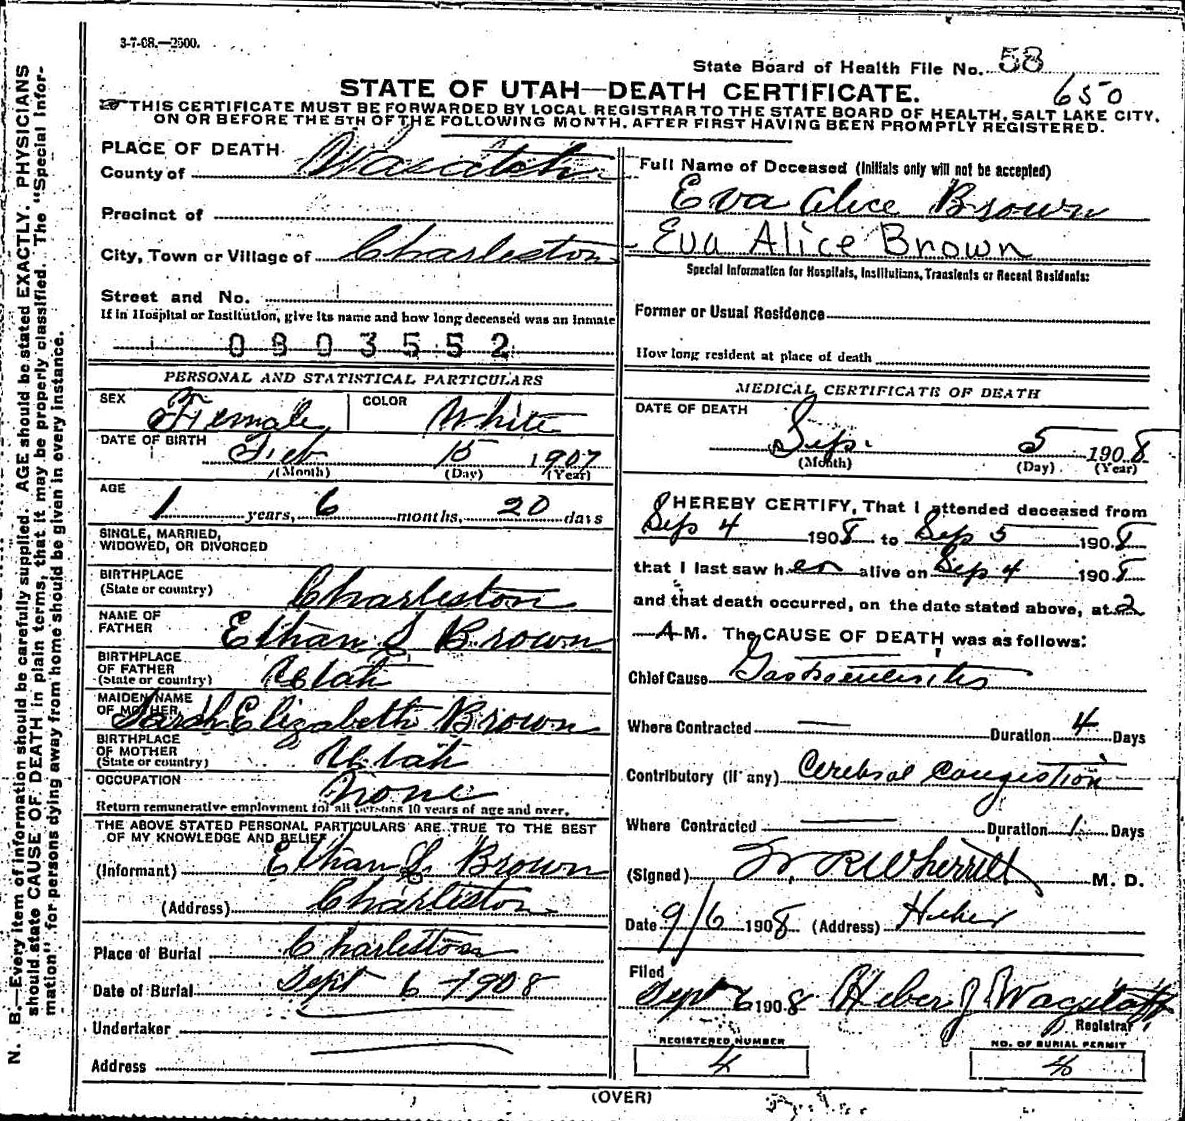 3-7-08.—2500.
State Board of Health File No. 58
650
STATE OF UTAH—DEATH CERTIFICATE.
THIS CERTIFICATE MUST BE FORWARDED BY LOCAL REGISTRAR TO THE STATE BOARD OF HEALTH, SALT LAKE CITY,
ON OR BEFORE THE 5TH OF THE FOLLOWING MONTH, AFTER FIRST HAVING BEEN PROMPTLY REGISTERED.
N. B.—Every item of information should be carefully supplied. AGE should be stated EXACTLY. PHYSICIANS
should state CAUSE OF DEATH in plain terms, that it may be properly classified. The "Special Infor-
mation" for persons dying away from home should be given in every instance.
PLACE OF DEATH
County of Wasatch
Precinct of
City, Town or Village of Charleston
Street and No.
If in Hospital or Institution, give its name and how long deceased was an Inmate
0803552
PERSONAL AND STATISTICAL PARTICULARS
SEX Female COLOR White
DATE OF BIRTH Feb 15 1907
(Month) (Day) (Year)
AGE
1 years, 6 months, 20 days
SINGLE, MARRIED,
WIDOWED, OR DIVORCED
BIRTHPLACE
(State or country) Charleston
NAME OF
FATHER Ethan S Brown
BIRTHPLACE
OF FATHER
(State or country) Utah
MAIDEN NAME
OF MOTHER Sarah Elizabeth Brown
BIRTHPLACE
OF MOTHER
(State or country) Utah
OCCUPATION None
Return remunerative employment for all persons 10 years of age and over.
THE ABOVE STATED PERSONAL PARTICULARS ARE TRUE TO THE BEST
OF MY KNOWLEDGE AND BELIEF
(Informant) Ethan Brown
(Address) Charleston
Place of Burial Charleston
Date of Burial Sept 6 1908
Undertaker
Address
Full Name of Deceased (Initials only will not be accepted)
Eva Alice Brown
Eva Alice Brown
Special Information for Hospitals, Institutians, Transients or Recent Residents:
Former or Usual Residence
How long resident at place of death
MEDICAL CERTIFICATE OF DEATH
DATE OF DEATH
Sep. 5 1908
(Month) (Day) (Year)
I HEREBY CERTIFY, That I attended deceased from
Sep 4 1908 to Sep 5 1908
that I last saw her alive on Sep 4 1908
and that death occurred, on the date stated above, at 2
A M. The CAUSE OF DEATH was as follows:
Chief Cause Gastroenteritis
Where Contracted — Duration 4 Days
Contributory (if any) Cerebral Congestion
Where Contracted — Duration 1 Days
(Signed) W. R Wherritt M. D.
Date 9/6 1908 (Address) Heber
Filed
Sept 6 1908 Heber J Wagstaff
Registrar
REGISTERED NUMBER
4
NO. OF BURIAL PERMIT
(OVER)